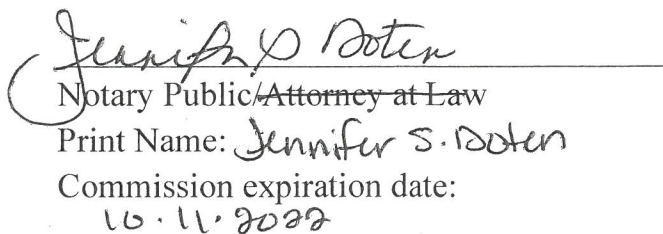 Jennifer S Doten
Notary Public/Attorney at Law
Print Name: Jennifer S. Doten
Commission expiration date:
10.11.2022